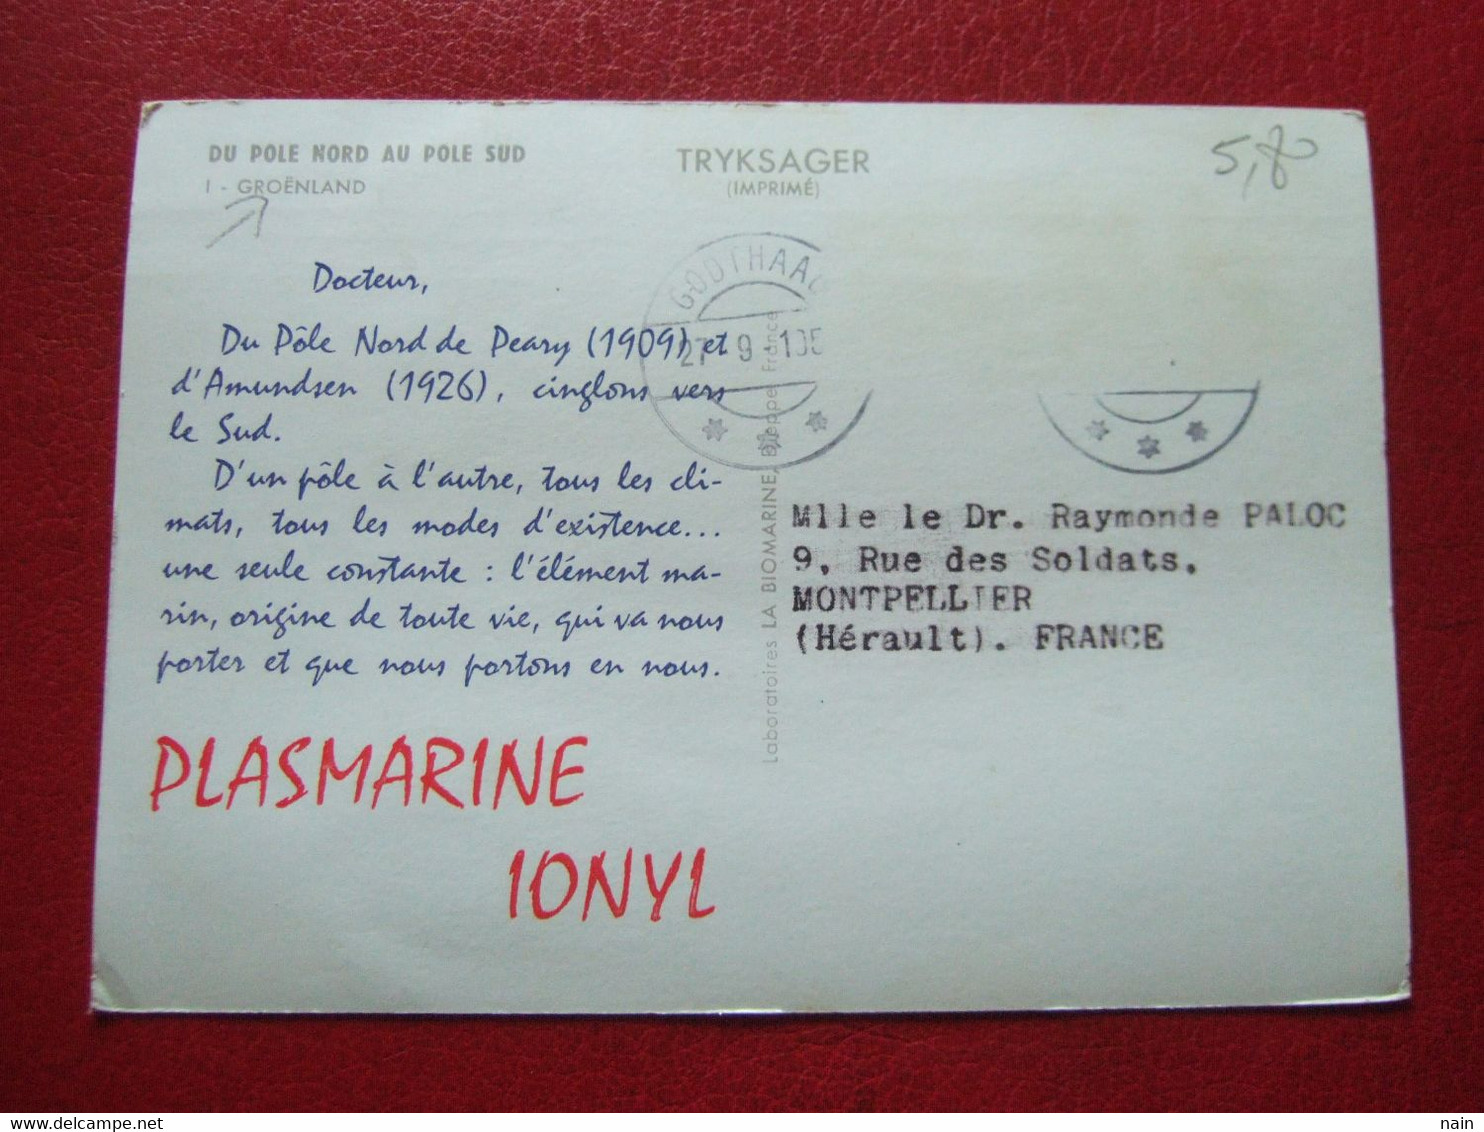 DU POLE NORD AU POLE SUD
I - GROËNLAND
TRYKSAGER
(IMPRIMÉ)
5,80
GODTHAAB
27 9 195
Docteur,
Du Pôle Nord de Peary (1909) et
d'Amundsen (1926), cinglons vers
le Sud.
D'un pôle à l'autre, tous les cli-
mats, tous les modes d'existence...
une seule constante : l'élément ma-
rin, origine de toute vie, qui va nous
porter et que nous portons en nous.
PLASMARINE
IONYL
Laboratoires LA BIOMARINE, Dieppe France
Mlle le Dr. Raymonde PALOC
9, Rue des Soldats.
MONTPELLIER
(Hérault). FRANCE
- nain -
www.delcampe.net